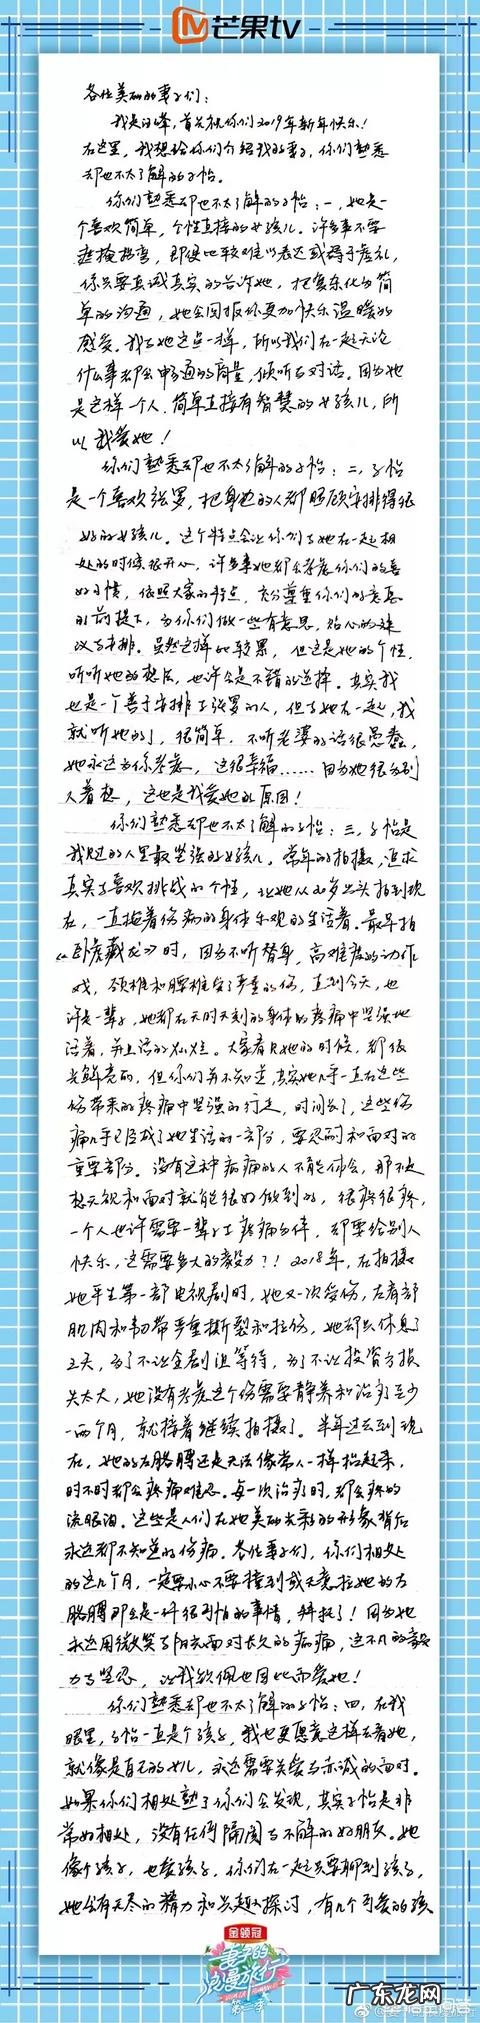 芒果tv
各位美丽的妻子们：
我是汪峰，首先祝你们2019年新年快乐！
在这里，我想给你们介绍我的妻子，你们熟悉
却也不太了解的子怡。
你们熟悉却也不太了解的子怡：一，她是一
个喜欢简单，个性直接的女孩儿。许多事不要
遮掩拐弯，即便比较难以表达或碍于虚礼，
你只要真诚真实的告诉她，把复杂化为简
单的沟通，她会回报你更加快乐温暖的
感受。我与她这点一样，所以我们在一起无论
什么事都会畅通的商量，倾听与对话。因为她
是这样一个人，简单直接有智慧的女孩儿，所
以我爱她！
你们熟悉却也不太了解的子怡：二，子怡
是一个喜欢张罗，把身边的人都照顾安排得很
好的女孩儿。这个特点会让你们与她在一起相
处的时候很开心，许多事她都会考虑你们的喜
好习惯，依照大家的特点，充分尊重你们的意愿
的前提下，为你们做一些有意思，贴心的建
议与安排。虽然这样比较累，但这是她的个性，
听听她的想法，也许会是不错的选择。其实我
也是一个善于安排与张罗的人，但与她在一起，我
就听她的了，很简单，不听老婆的话很愚蠢，
她永远为你考虑，这很幸福……因为她很为别
人着想，这也是我爱她的原因！
你们熟悉却也不太了解的子怡：三，子怡是
我见过的人里最坚强的女孩儿。常年的拍摄，追求
真实与喜欢挑战的个性，让她从20岁出头拍到现
在，一直拖着伤病的身体乐观的生活着。最早拍
《卧虎藏龙》时，因为不听替身，高难度的动作
戏，颈椎和腰椎受了严重的伤，直到今天，也
许是一辈子，她都在无时无刻的身体的疼痛中坚强地
活着，并且活的灿烂。大家看见她的时候，都很
光鲜亮丽，但你们并不知道，其实她几乎一直在这些
伤带来的疼痛中坚强的行走，时间长了，这些伤
痛几乎已经成了她生活的一部分，要忍耐和面对的
重要部分。没有这种病痛的人不能体会，那不是
想无视和面对就能很好做到的，很疼很疼，
一个人也许需要一辈子与疼痛为伴，却要给别人
快乐，这需要多大的毅力？！2018年，在拍摄
她平生第一部电视剧时，她又一次受伤，左肩部
肌肉和韧带严重撕裂和拉伤，她却只休息了
三天，为了不让全剧组等待，为了不让投资方损
失太大，她没有考虑这个伤需要静养和治疗至少
一两个月，就接着继续拍摄了。半年过去到现
在，她的左胳膊还是无法像常人一样抬起来，
时不时都会疼痛难忍。每一次治疗时，都会疼的
流眼泪。这些是人们在她美丽光彩的形象背后
永远都不知道的伤病。各位妻子们，你们相处
的这几个月，一定要小心不要撞到或无意拉她的左
胳膊那会是一件很可怕的事情，拜托了！因为她
永远用微笑与阳光面对长久的病痛，这不凡的毅
力与坚忍，让我钦佩也因此而爱她！
你们熟悉却也不太了解的子怡：四，在我
眼里，子怡一直是个孩子，我也更愿意这样去看她，
就像是自己的女儿，永远需要关爱与赤诚的面对。
如果你们相处熟了你们会发现，其实子怡是非
常好相处，没有任何隔阂与不解的好朋友。她
像个孩子，也爱孩子，你们在一起只要聊到孩子，
她会有无尽的精力和兴趣探讨，有几个可爱的孩
金领冠
妻子的
浪漫旅行
第二季
广东龙网